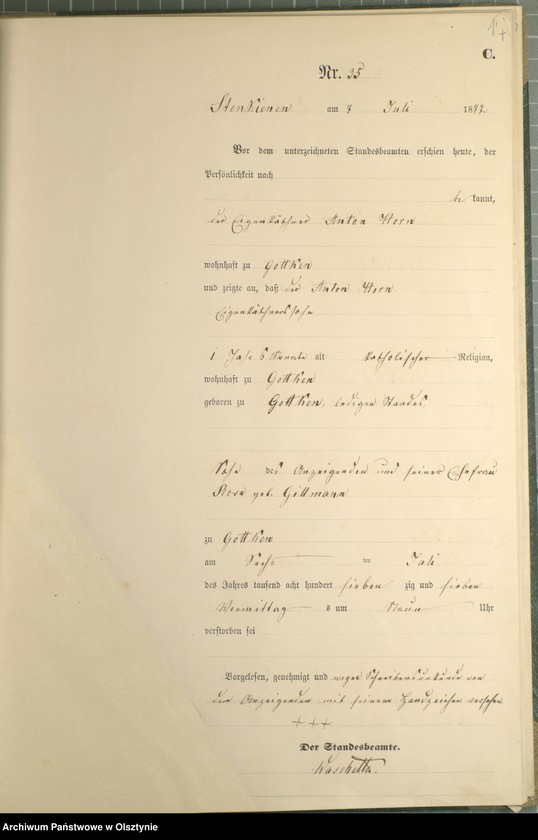 C.
Nr. 35
Stenkienen am 7 Juli 1877.
Vor dem unterzeichneten Standesbeamten erschien heute, der
Persönlichkeit nach
be kannt,
der Eigenkäthner Anton Hern
wohnhaft zu Gottken
und zeigte an, daß der Anton Hern
Eigenkäthnerssohn
1 Jahr 6 Monate alt katholischer Religion,
wohnhaft zu Gottken
geboren zu Gottken, ledigen Standes,
Sohn des Anzeigenden und seiner Ehefrau
geb.
zu Gottken
am Sechs ten Juli
des Jahres tausend acht hundert sieben zig und sieben
Vormittag s um Neun Uhr
verstorben sei
Vorgelesen, genehmigt und wegen Schreibensunkunde von
dem Anzeigenden mit seinem Handzeichen versehen
+++
Der Standesbeamte.
Archiwum Państwowe w Olsztynie